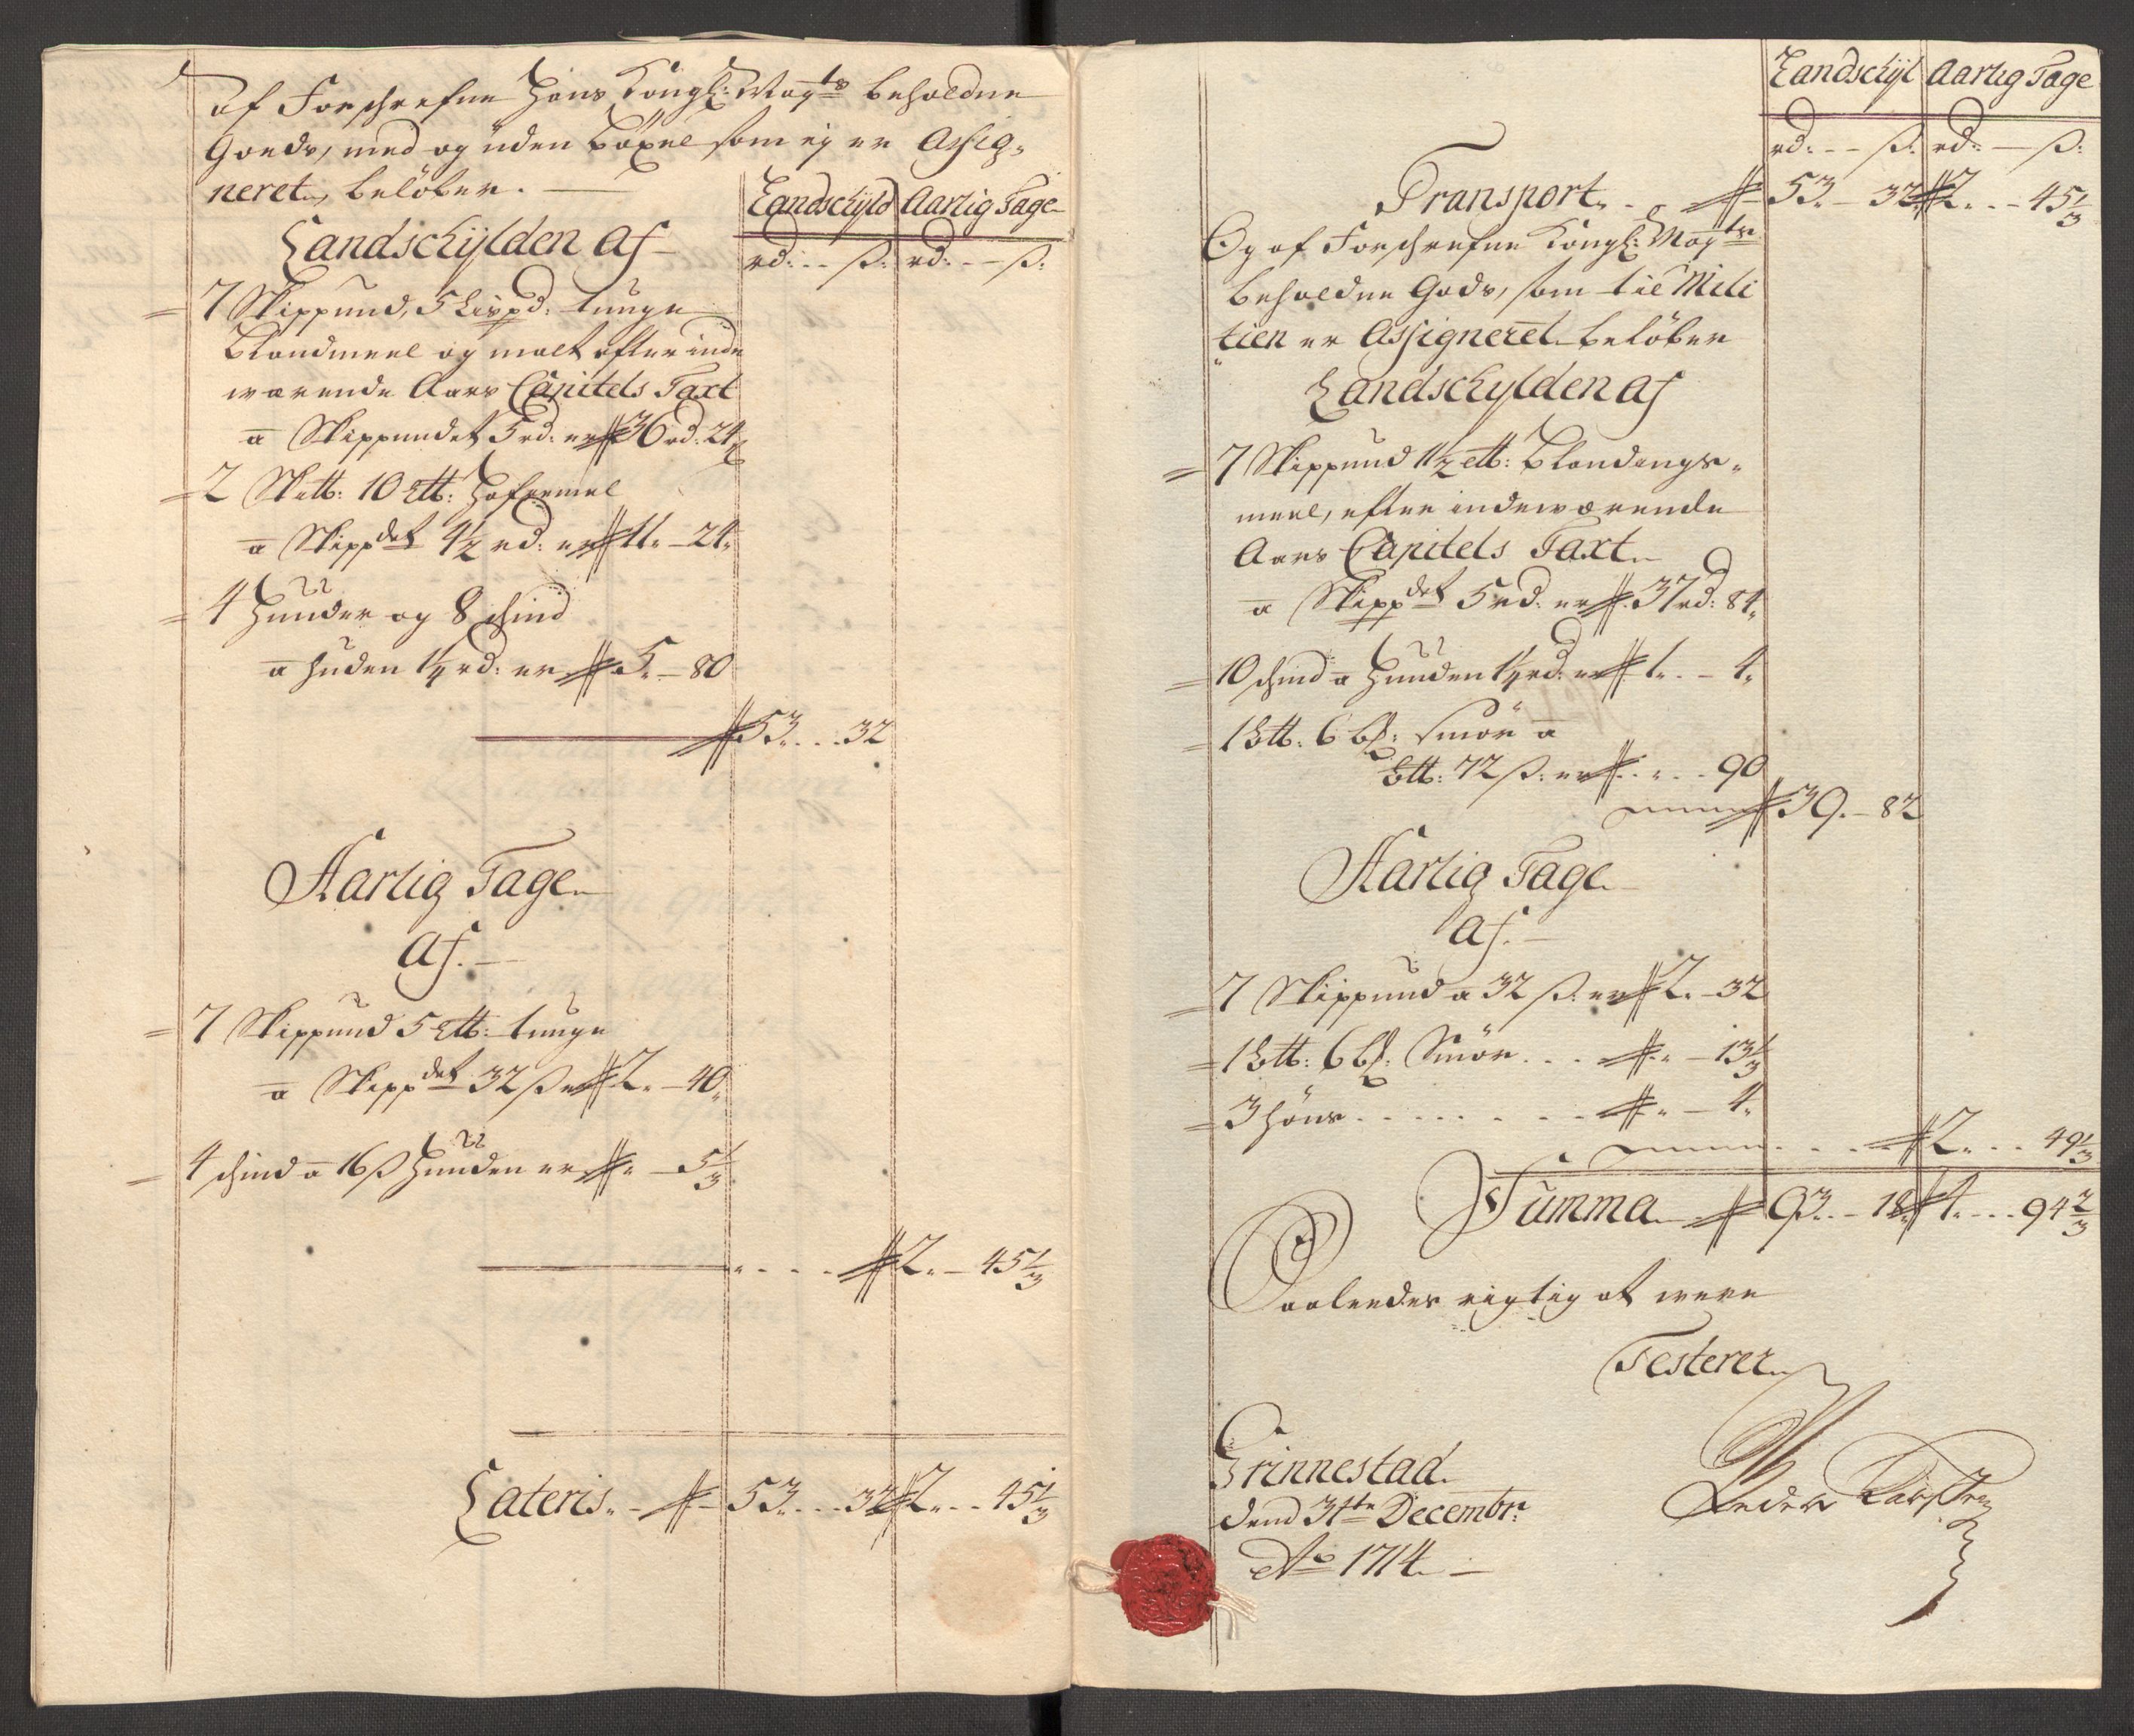 af Forschrefne Hans Kongl: Mayts beholdne
Goeds, med og uden böxel som ej er Assig-
neret, belöber.
Landschyld Aarlig Tage
rd: -- ß: rd: -- ß:
Landschylden af
7 Skippund, 5 Lispd: tunge
blandmeel og malt efter inde
værende Aars Capitels Taxt
a Skippundet 5 rd: er 36 rd: 24 ß
2 Sktt: 10 Ltt: Hafremel
a Skippdet 4½ rd: er 11 - 24
4 Huuder og 8 schind
a huden 1¼ rd: er 5 - 80
53 - 32
Aarlig Tage
af.
7 Skippund 5 Ltt: tunge
a Skippdet 32 ß er 2 - 40
4 schind a 16 ß Huuden er - 5⅓
2 - 45⅓
Lateris 53 - 32 2 - 45⅓
Landschyl Aarlig Tage
rd: -- ß: rd: -- ß:
Transport 53 - 32 2 - 45⅓
Og af Forschrefne Kongl: Mayts
beholdne Gods, som til Mili
tien er Assigneret belöber
Landschylden af
7 Skippund 11½ Ltt: blandings-
meel, efter indeværende
Aars Capitels Taxt
a Skippdet 5 rd: er 37 rd: 84
10 schind a Huuden 1¼ rd: er 1 - 4
1 Btt: 6 bß: Smör a
Btt: 72 ß: er - 90
39 - 82
Aarlig Tage
af.
7 Skippund a 32 ß: er 2 - 32
1 Btt: 6 bß: Smör - 13⅓
3 höns - 4
2 - 49⅓
Summa 93 - 18 4 - 94⅔
Saaleedes rigtig at være
Testerer
Grinnestad
dend 31te Decembr:
Ao 1714
Peder Karsten